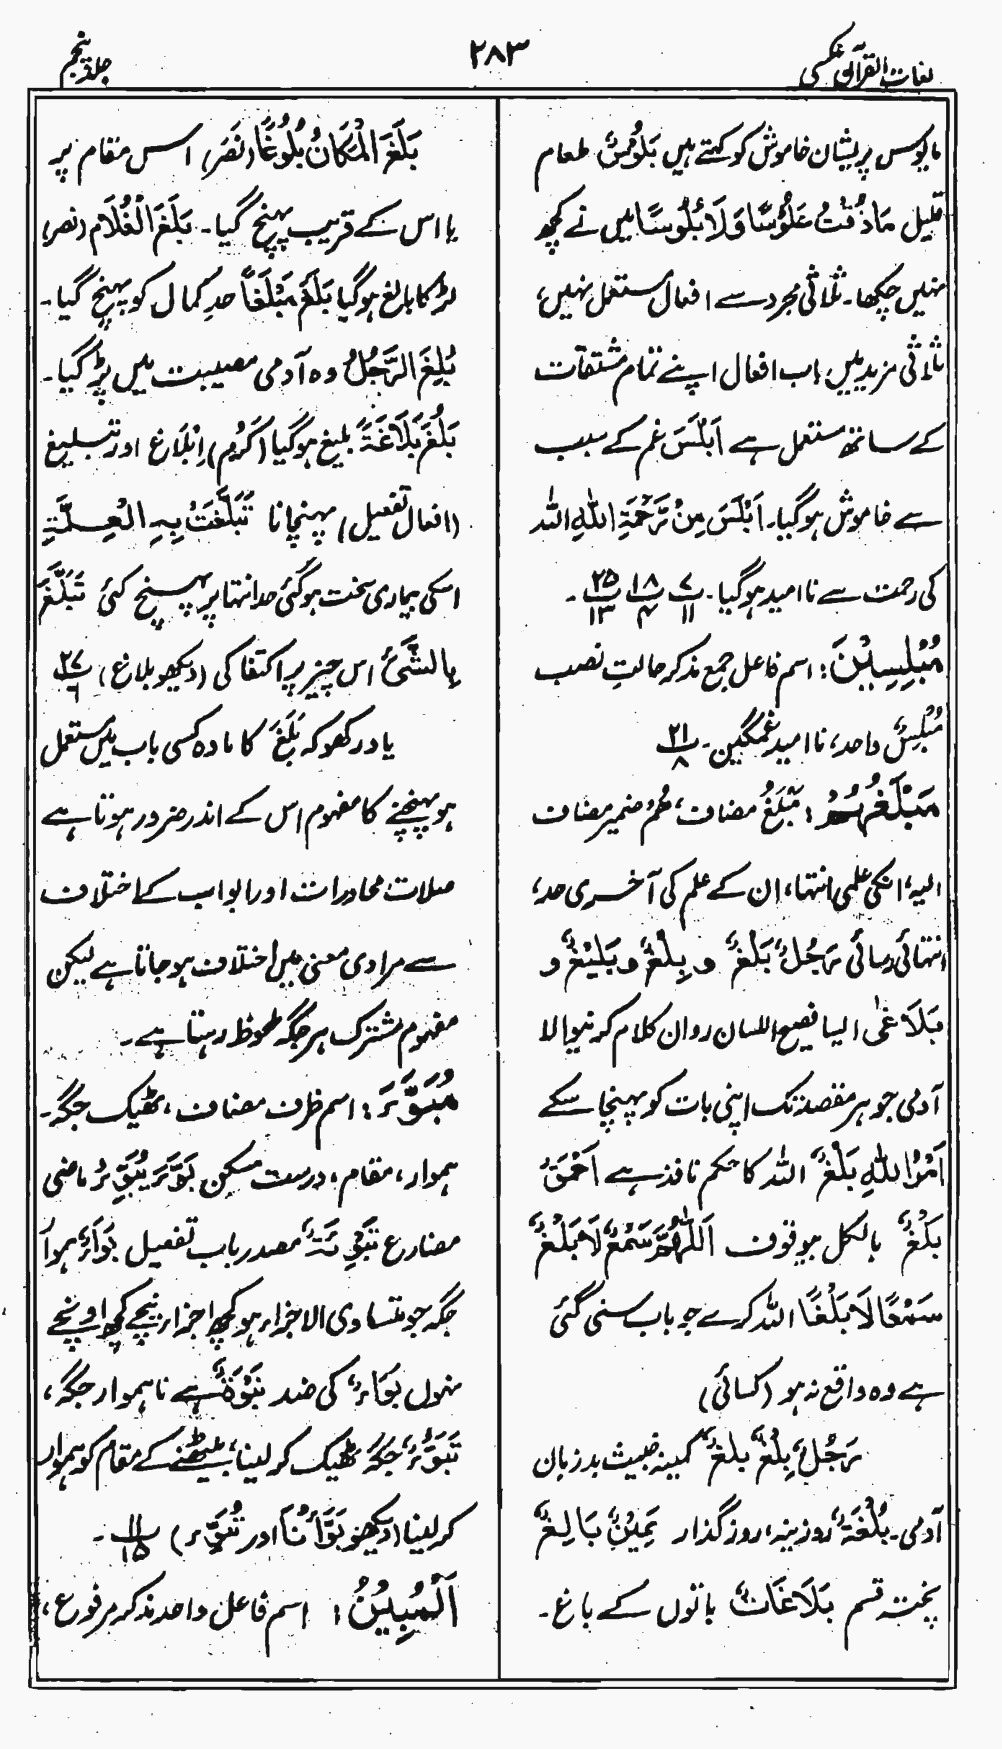 لغات القرآن عکسی
۲۸۳
جلد پنجم
مایوس پریشان خاموش کو کہتے ہیں بَلُوْسٌ طعام
قلیل مَاذُقْتُ عَلُوْسًا وَلَا بُلُوسًا میں نے کچھ
نہیں چکھا۔ ثلاثی مجرد سے افعال مستعمل نہیں،
ثلاثی مزید میں باب افعال اپنے تمام مشتقات
کے ساتھ مستعمل ہے اَبْلَسَ غم کے سبب
سے خاموش ہوگیا۔ اَبْلَسَ مِنْ رَّحْمَةِ اللّٰهِ اللہ
کی رحمت سے ناامید ہوگیا۔ پ۷/۱۱ پ۱۸/۴ پ۲۵/۱۳۔
مُبْلِسِیْنَ: اسم فاعل جمع مذکر حالتِ نصب
مُبْلِسٌ واحد، ناامید غمگین۔ پ۲۱/۸
مَبْلَغُهُمْ: مَبْلَغُ مضاف، هُمْ ضمیر مضاف
الیہ، انکی علمی انتہا، ان کے علم کی آخری حد،
انتہائی رسائی رَجُلٌ بَلْغٌ و بِلْغٌ و بَلِیْغٌ و
بَلَاغٰی ایسا فصیح اللسان رواں کلام کرنیوالا
آدمی جو ہر مقصد تک اپنی بات کو پہنچا سکے
اَمْرُ اللّٰهِ بَلْغٌ اللہ کا حکم نافذ ہے اَحْمَقُ
بَلْغٌ بالکل بیوقوف اَللّٰهُمَّ سَمْعٌ لَا بَلْغٌ
سَمْعًا لَا بَلْغًا اللہ کرے جو بات سنی گئی
ہے وہ واقع نہ ہو (کسائی)
رَجُلٌ بِلْغٌ بلغٌ کمینہ خبیث بدزبان
آدمی۔ بُلْغَةٌ روزینہ، روزگذار یَمِیْنٌ بَالِغٌ
پختہ قسم بَلَاغَاتٌ باتوں کے باغ۔
بَلَغَ الْمَکَانَ بُلُوْغًا (نَصَرَ) اس مقام پر
یا اس کے قریب پہنچ گیا۔ بَلَغَ الْغُلَامُ (نصر)
لڑکا بالغ ہوگیا بَلَغَ مَبْلَغًا حدِ کمال کو پہنچ گیا۔
بُلِغَ الرَّجُلُ وہ آدمی مصیبت میں پڑ گیا۔
بَلُغَ بَلَاغَةً بلیغ ہوگیا (کَرُمَ) اِبْلَاغ اور تبلیغ
(افعال تفعیل) پہنچانا تَبَلَّغَتْ بِهِ الْعِلَّةُ
اسکی بیماری سخت ہوگئی حد انتہا پر پہنچ گئی تَبَلَّغَ
بِالشَّیْءِ اس چیز پر اکتفا کی (دیکھو بلاغ) پ۲۷/۶
یاد رکھو کہ بَلَغَ کا مادہ کسی باب میں مستعمل
ہو پہنچنے کا مفہوم اس کے اندر ضرور ہوتا ہے
صلات محاورات اور ابواب کے اختلاف
سے مرادی معنی میں اختلاف ہو جاتا ہے لیکن
مفہوم مشترک ہر جگہ ملحوظ رہتا ہے۔
مُبَوَّءَ: اسم ظرف مضاف، ٹھیک جگہ۔
ہموار، مقام، درست مسکن بَوَّءَ یُبَوِّءُ ماضی
مضارع تَبْوِئَةٌ مصدر باب تفعیل بَوَاءٌ ہموار
جگہ جو متساوی الاجزاء ہو کچھ اجزاء نیچے کچھ اونچے
نہوں بَوَاءٌ کی ضد نَبْوَةٌ ہے ناہموار جگہ،
تَبَوُّءٌ جگہ ٹھیک کر لینا، بیٹھنے کے مقام کو ہموار
کر لینا (دیکھو بَوَّأْنَا اور تُبَوِّء) پ۱۱/۱۵۔
اَلْمُبِیْنُ: اسم فاعل واحد مذکر مرفوع،